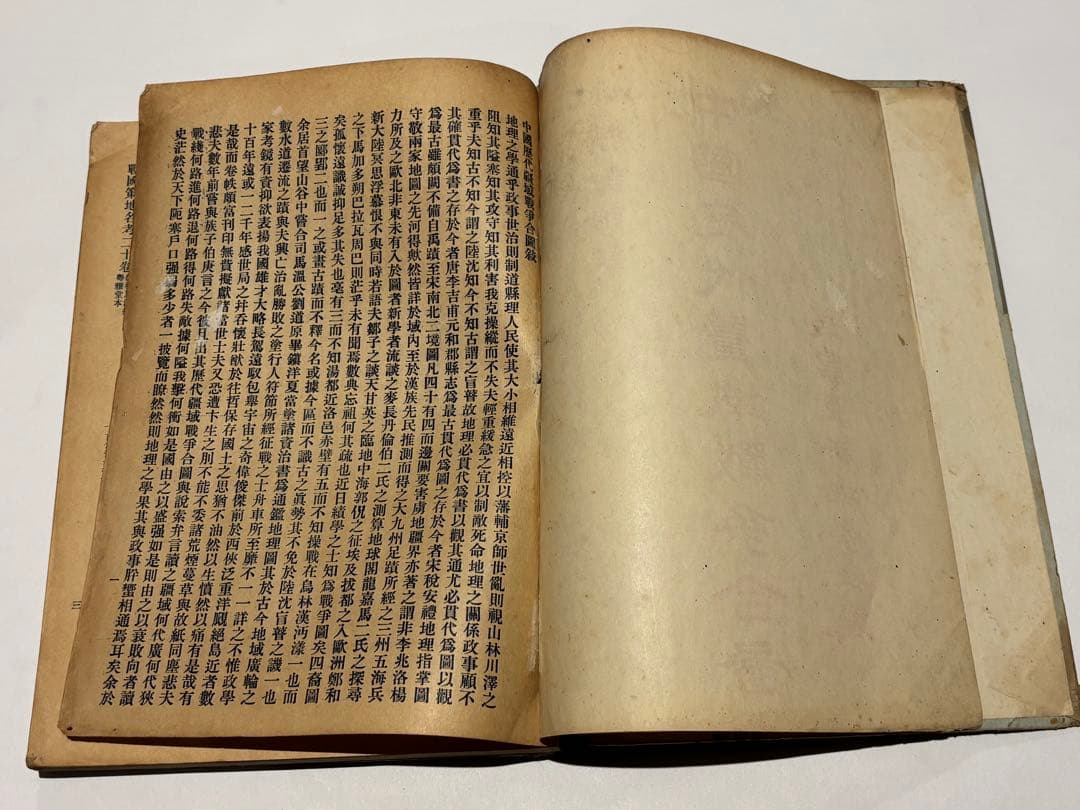 中國歷代疆域戰爭合圖敘
地理之學通乎政事世治則制道縣理人民使其大小相維遠近相控以藩輔京師世亂則視山林川澤之
阻知其隘塞知其攻守知其利害我克操縱而不失夫輕重緩急之宜以制敵死命地理之關係政事顧不
重乎夫知古不知今謂之陸沈知今不知古謂之盲瞽故地理必貫代爲書以觀其通尤必貫代爲圖以觀
其確貫代爲書之存於今者唐李吉甫元和郡縣志爲最古貫代爲圖之存於今者宋稅安禮地理指掌圖
爲最古雖頗闕不備自禹蹟至宋南北二境圖凡四十有四而邊關要害虜地疆界亦著之謂非李兆洛楊
守敬兩家地圖之先河得歟然皆詳於域內至於漢族先民推測而得之大九州足蹟所經之三州五海兵
力所及之歐北非東未有入於圖者新學者流談之麥長丹倫伯二氏之測算地球閣龍嘉馬二氏之探尋
新大陸冥思浮慕恨不與同時若語夫鄒子之談天甘英之臨地中海郭侃之征埃及拔都之入歐洲鄭和
之下馬加多朔巴拉瓦周巴則茫乎未有聞焉數典忘祖何其疏也近日績學之士知爲戰爭圖矣四裔圖
矣孤懷遠識誠抑足多其失也毫有三而不知湯都近洛邑赤壁有五而不知操戰在烏林漢沔漾一也而
三之郾郢二也而一之或畫古蹟而不釋今名或據今區而不識古之眞勢其不免於陸沈盲瞽之譏一也
余居首望山谷中嘗合司馬溫公劉道原畢鎭洋夏嗛塗諸資治書爲通鑑地理圖其於古今地域廣輪之
數水道遷流之蹟與夫興亡治亂勝敗之塗行人符節所經征戰之士舟車所至靡不一一詳之不惟政學
家考鏡有資抑欲表揚我國雄才大略長駕遠馭包舉宇宙之奇偉俊傑前於西俠泛重洋覛絕島近者數
十百年遠或一二千年感世局之幷吞懷壯猷於往哲保存國土之思猶不油然以生憤然以痛有是哉有
是哉而卷帙頗富刊印無貲擬獻諸當世士夫又恐遭卞生之刖不能不委諸荒煙蔓草與故紙同塵悲夫
悲夫數年前嘗與族子伯庚言之今彼且出其歷代疆域戰爭合圖與說索弁言讀之疆域何代廣何代狹
戰綫何路進何路退何路得何路失敵據何隘我擊何衝如是國由之以盛强如是則由之以衰敗向者讀
史茫然於天下阨塞戶口强多少者一披覽而瞭然然則地理之學果其與政事肸蠁相通焉耳矣余於
一
戰國策地名考二十卷
粵雅堂本
三